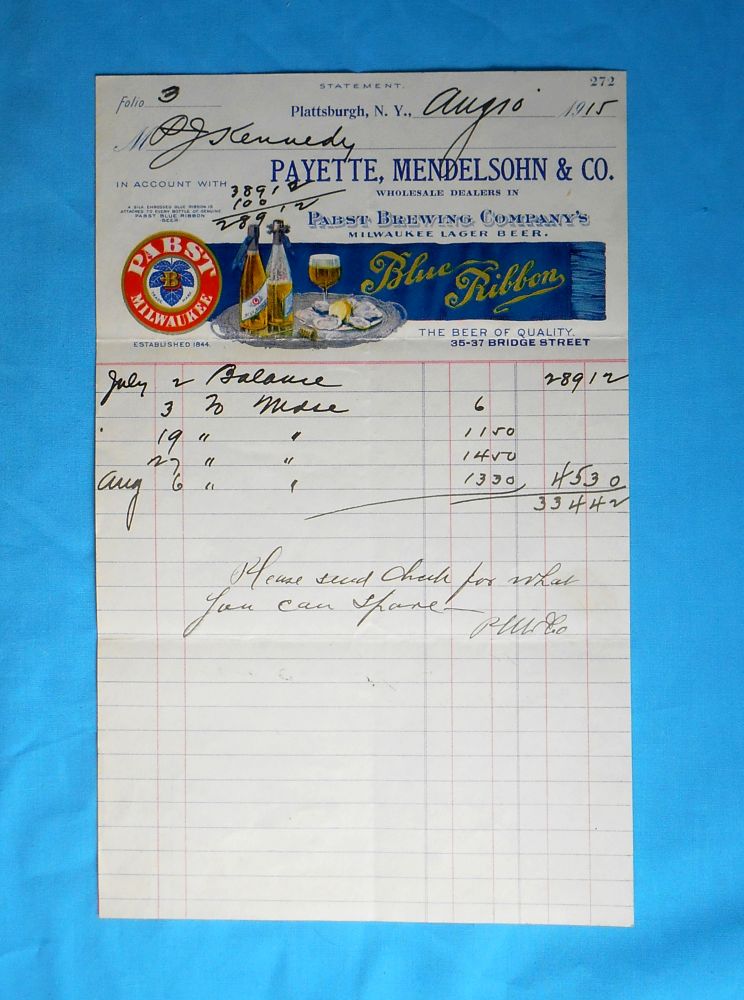 STATEMENT.
272
folio 3
Plattsburgh, N. Y., Aug 10 1915
M P J Kennedy
PAYETTE, MENDELSOHN & CO.
IN ACCOUNT WITH
WHOLESALE DEALERS IN
38912
100
28912
A SILK EMBOSSED BLUE RIBBON IS
ATTACHED TO EVERY BOTTLE OF GENUINE
PABST BLUE RIBBON
BEER
PABST BREWING COMPANY'S
MILWAUKEE LAGER BEER.
PABST
B
MILWAUKEE
Blue Ribbon
THE BEER OF QUALITY.
ESTABLISHED 1844.
35-37 BRIDGE STREET
July 2 Balance 28912
3 To Mdse 6
19 " " 1150
27 " " 1450
Aug 6 " " 1330 4530
33442
Please send check for what
you can spare
P M & Co